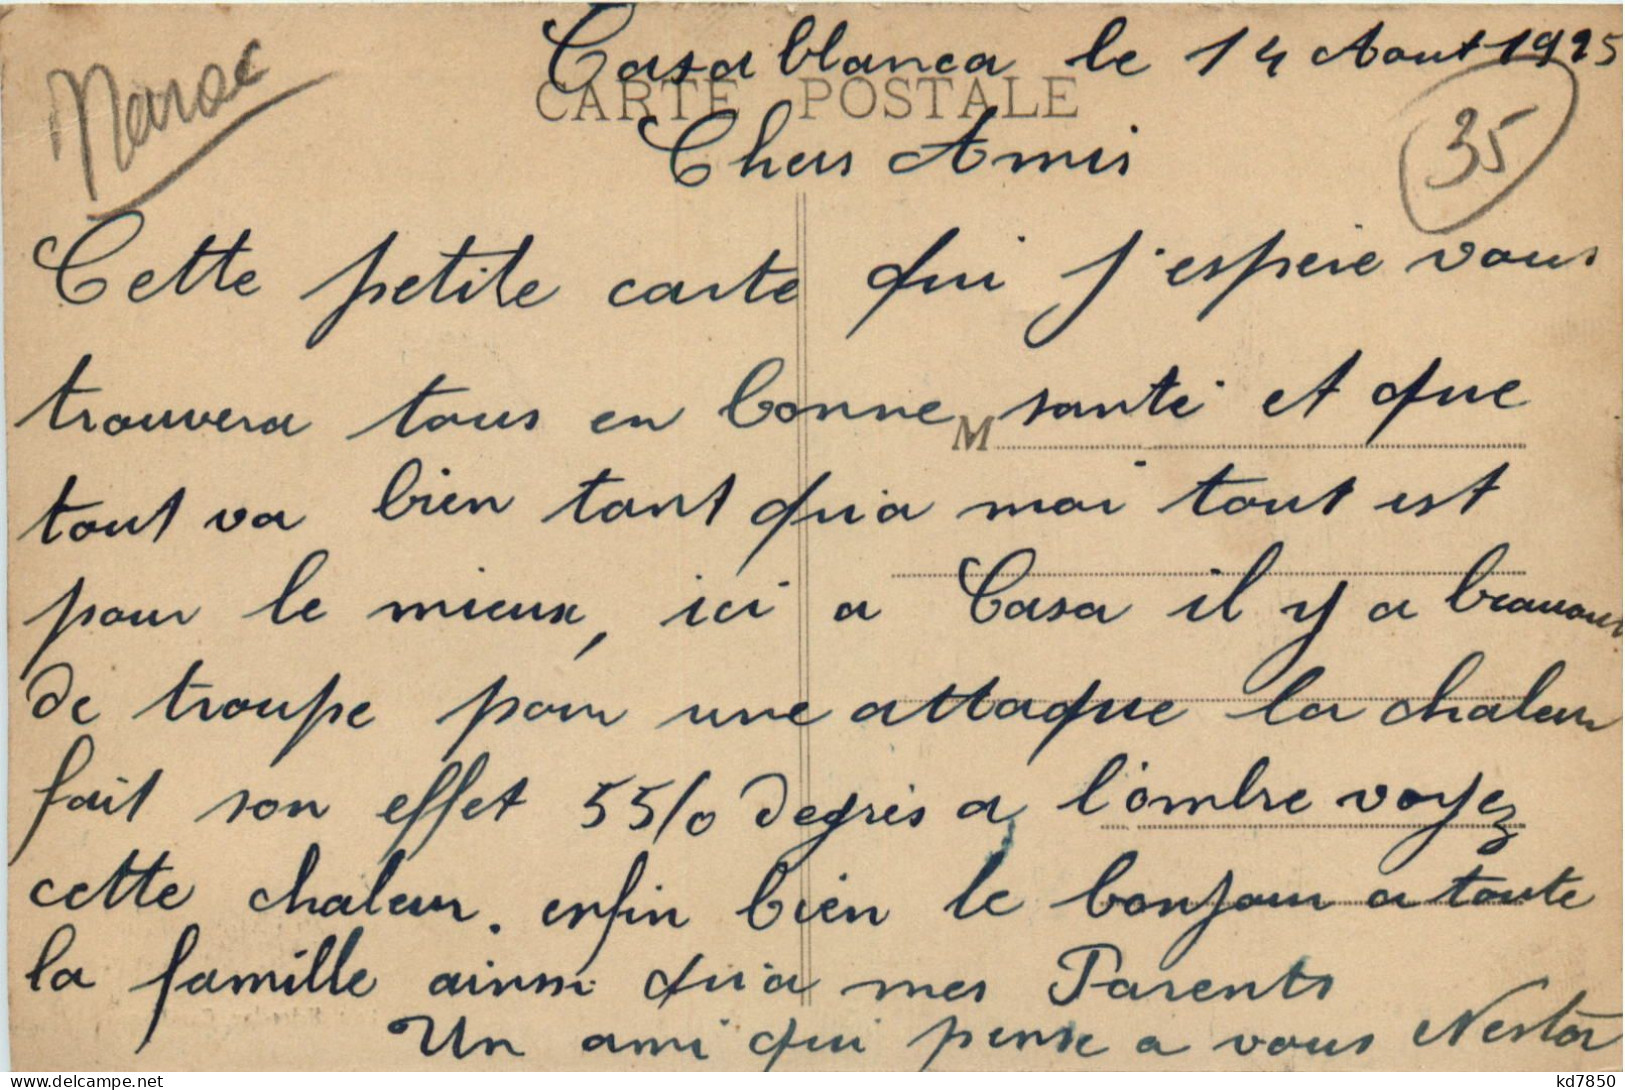 Maroc
Casablanca le 14 Aout 1925
CARTE POSTALE
35
Chers Amis
Cette petite carte qui j'espère vous
trouvera tous en bonne santé et que
M
tout va bien tant qu'a moi tout est
pour le mieux, ici a Casa il y a
de troupe pour une attaque la chaleur
fait son effet 55/0 degrés a l'ombre voyez
cette chaleur. enfin bien le bonjour a toute
la famille ainsi qu'a mes Parents
Un ami qui pense a vous Nestor
kd7850